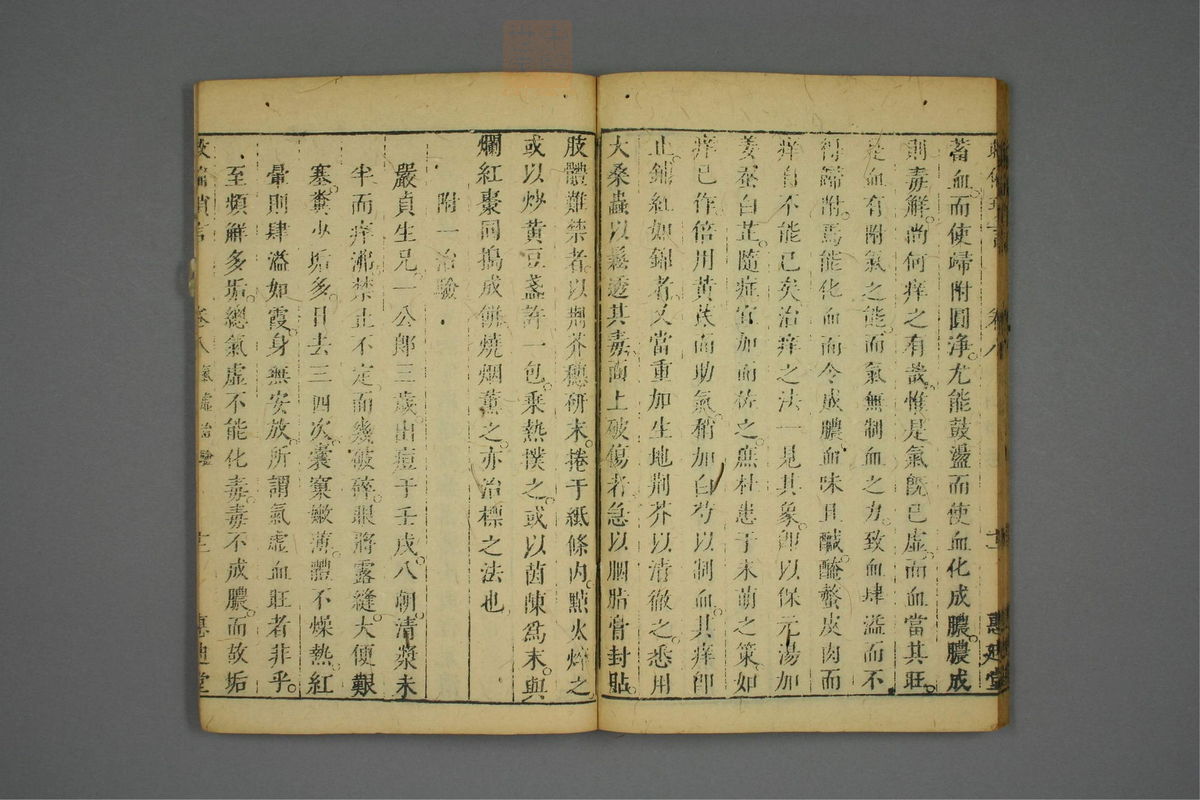 蓄血而使歸附圓淨尤能鼓盪而使血化成膿膿成
則毒解尚何痒之有哉惟是氣既已虛而血當其旺
是血有附氣之能而氣無制血之力致血肆溢而不
得歸附焉能化血而令成膿血味且鹹醃螫皮肉而
痒自不能已矣治痒之法一見其象即以保元湯加
姜蚕白芷隨症宜加而佐之庶杜患于未萌之策如
痒已作倍用黃芪而助氣稍加白芍以制血其痒即
止鋪紅如錦者又當重加生地荆芥以清徹之悉用
大桑蟲以鬆透其毒面上破傷者急以胭脂膏封貼
肢體難禁者以荆芥穗研末捲于紙條內點火焠之
或以炒黃豆盞許一包乘熱撲之或以茵陳爲末與
爛紅棗同搗成餅燒烟薰之亦治標之法也
附一治驗
嚴貞生兄一公郎三歲出痘于壬戌八朝清漿未
半而痒沸禁止不定面幾破碎眼將露縫大便艱
塞糞少垢多日去三四次囊窠嫩薄體不燥熱紅
暈則肆溢如霞身無安放所謂氣虛血旺者非乎
至頻解多垢總氣虛不能化毒毒不成膿而故垢
卷八 氣虛治驗 十二 惠迪堂